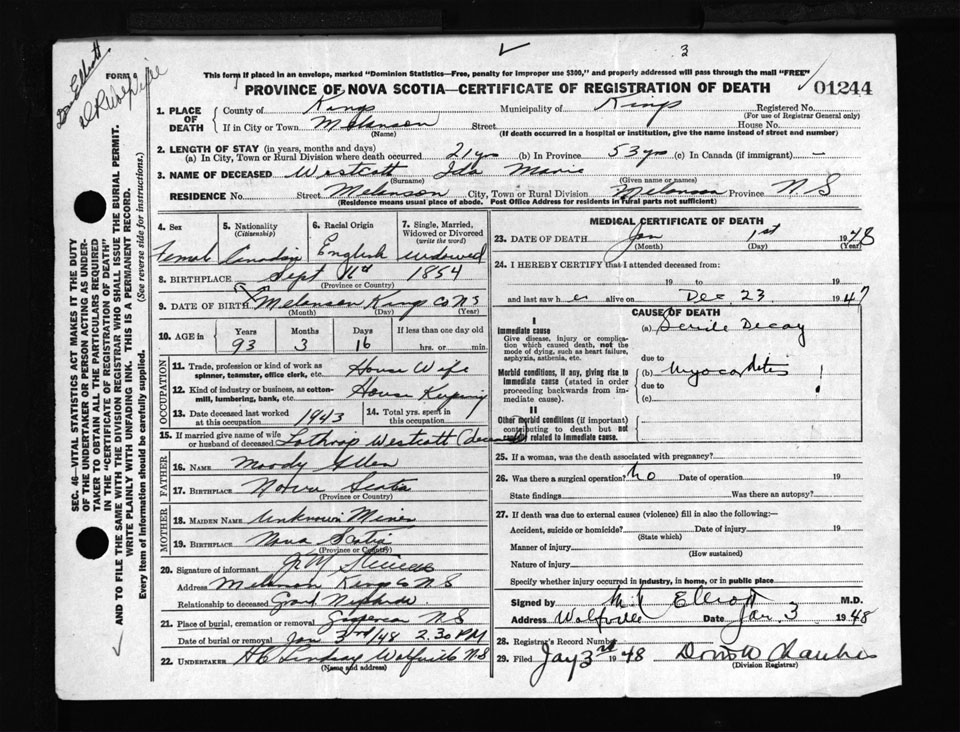 3
This form if placed in an envelope, marked "Dominion Statistics—Free, penalty for improper use $300," and properly addressed will pass through the mail "FREE"
FORM
PROVINCE OF NOVA SCOTIA—CERTIFICATE OF REGISTRATION OF DEATH
01244
1. PLACE OF DEATH County of Kings Municipality of Kings Registered No.
(For use of Registrar General only)
If in City or Town Melanson Street House No.
(Name) (If death occurred in a hospital or institution, give the name instead of street and number)
2. LENGTH OF STAY (in years, months and days)
(a) In City, Town or Rural Division where death occurred 21 yrs (b) In Province 53 yrs (c) In Canada (if immigrant) —
3. NAME OF DECEASED Westcott Ida Marie
(Surname) (Given name or names)
RESIDENCE No. Street Melanson City, Town or Rural Division Melanson Province N S
(Residence means usual place of abode. Post Office Address for residents in rural parts not sufficient)
4. Sex 5. Nationality (Citizenship) 6. Racial Origin 7. Single, Married, Widowed or Divorced (write the word)
Female Canadian English Widowed
8. BIRTHPLACE Sept 1854
(Province or Country)
9. DATE OF BIRTH Melanson Kings Co NS
(Month) (Day) (Year)
10. AGE in Years Months Days If less than one day old
93 3 16 hrs. or min.
OCCUPATION
11. Trade, profession or kind of work as spinner, teamster, office clerk, etc. House Wife
12. Kind of industry or business, as cotton-mill, lumbering, bank, etc. House Keeping
13. Date deceased last worked at this occupation 1943 14. Total yrs. spent in this occupation
15. If married give name of wife or husband of deceased Lothrop Westcott (deceased)
FATHER
16. NAME Moody Allen
17. BIRTHPLACE Nova Scotia
(Province or Country)
MOTHER
18. MAIDEN NAME Unknown Miner
19. BIRTHPLACE Nova Scotia
(Province or Country)
20. Signature of informant
Address Melanson Kings Co N S
Relationship to deceased Grand
21. Place of burial, cremation or removal Gaspereau NS
Date of burial or removal Jan 3rd/48 2.30 PM
22. UNDERTAKER H C Lindsay Wolfville N S
(Name and address)
MEDICAL CERTIFICATE OF DEATH
23. DATE OF DEATH Jan 1st 1948
(Month) (Day) (Year)
24. I HEREBY CERTIFY that I attended deceased from:
19 to 19
and last saw her alive on Dec. 23 1947
CAUSE OF DEATH
I
Immediate cause
Give disease, injury or complication which caused death, not the mode of dying, such as heart failure, asphyxia, asthenia, etc.
(a) Senile Decay
due to
Morbid conditions, if any, giving rise to immediate cause (stated in order proceeding backwards from immediate cause).
(b) Myocarditis
due to
(c)
II
Other morbid conditions (if important) contributing to death but not causally related to immediate cause.
25. If a woman, was the death associated with pregnancy?
26. Was there a surgical operation? No Date of operation 19
State findings Was there an autopsy?
27. If death was due to external causes (violence) fill in also the following:—
Accident, suicide or homicide? Date of injury 19
(State which)
Manner of injury
(How sustained)
Nature of injury
Specify whether injury occurred in industry, in home, or in public place
Signed by Elliott M.D.
Address Wolfville Date Jan 3 1948
28. Registrar's Record Number
29. Filed Jay 3rd 1948
(Division Registrar)
SEC. 46—VITAL STATISTICS ACT MAKES IT THE DUTY
OF THE UNDERTAKER OR PERSON ACTING AS UNDERTAKER
TO OBTAIN ALL THE PARTICULARS REQUIRED
IN THE "CERTIFICATE OF REGISTRATION OF DEATH"
AND TO FILE THE SAME WITH THE DIVISION REGISTRAR WHO SHALL ISSUE THE BURIAL PERMIT.
WRITE PLAINLY WITH UNFADING INK. THIS IS A PERMANENT RECORD.
Every item of information should be carefully supplied.
(See reverse side for instructions.)